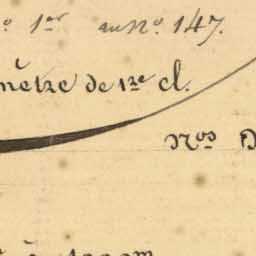 o. 1er au No. 147.
mètre de 1re cl.
Nos